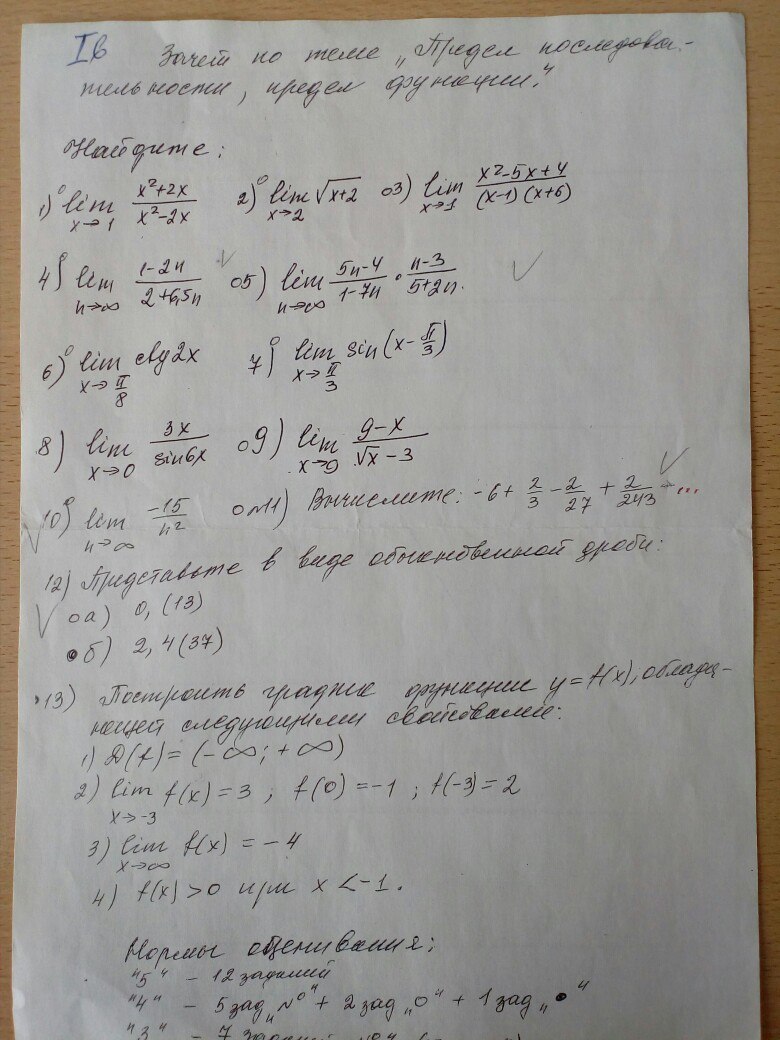 Iв Зачет по теме „Предел последова-
тельности, предел функции."
Найдите:
1)° lim x→1 (x²+2x)/(x²-2x) 2)° lim x→2 √(x+2) о3) lim x→1 (x²-5x+4)/((x-1)(x+6))
4)° lim n→∞ (1-2n)/(2+6,5n) о5) lim n→∞ (5n-4)/(1-7n) · (n-3)/(5+2n).
6)° lim x→π/8 ctg2x 7)° lim x→π/3 sin(x-π/3)
8) lim x→0 3x/sin6x о9) lim x→9 (9-x)/(√x-3)
10)° lim n→∞ -15/n² 11) Вычислите: -6+2/3-2/27+2/243-...
12) Представьте в виде обыкновенной дроби:
оа) 0,(13)
•б) 2,4(37)
•13) Построить график функции y=f(x), облада-
ющей следующими свойствами:
1) D(f)=(-∞;+∞)
2) lim x→-3 f(x)=3; f(0)=-1; f(-3)=2
3) lim x→∞ f(x)=-4
4) f(x)>0 при x<-1.
Нормы оценивания:
"5" - 12 заданий
"4" - 5 зад „№°" + 2 зад „о" + 1 зад „•"
"3" - 7